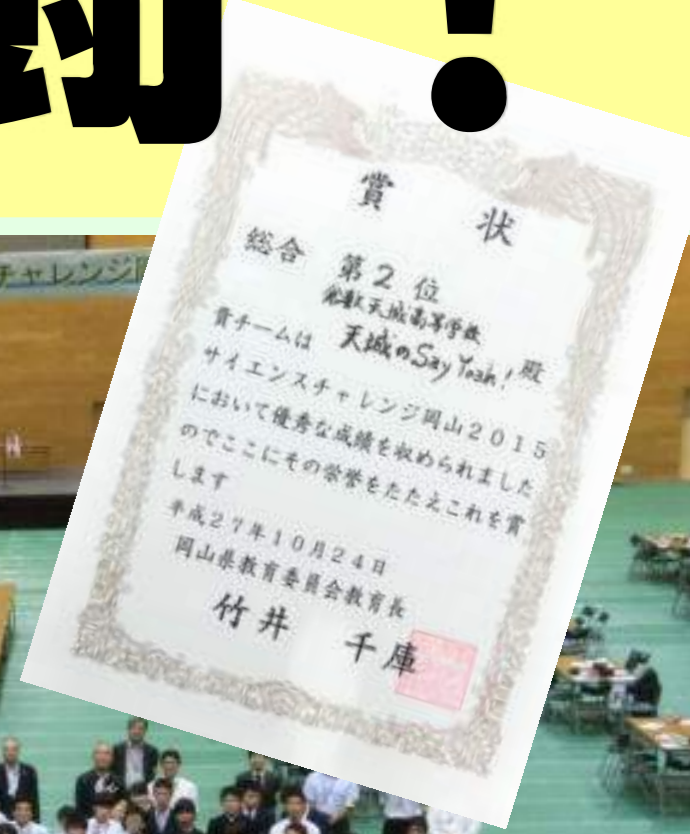 ！
チャレンジ
賞 状
総合 第２位
倉敷天城高等学校
貴チームは 天城のSay Yeah! 殿
サイエンスチャレンジ岡山２０１５
において優秀な成績を収められました
のでここにその栄誉をたたえこれを賞
します
平成２７年１０月２４日
岡山県教育委員会教育長
竹井 千庫